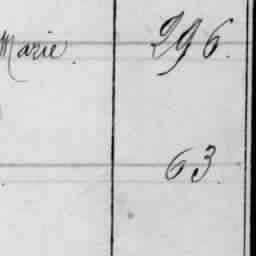 Marie. 296.
63